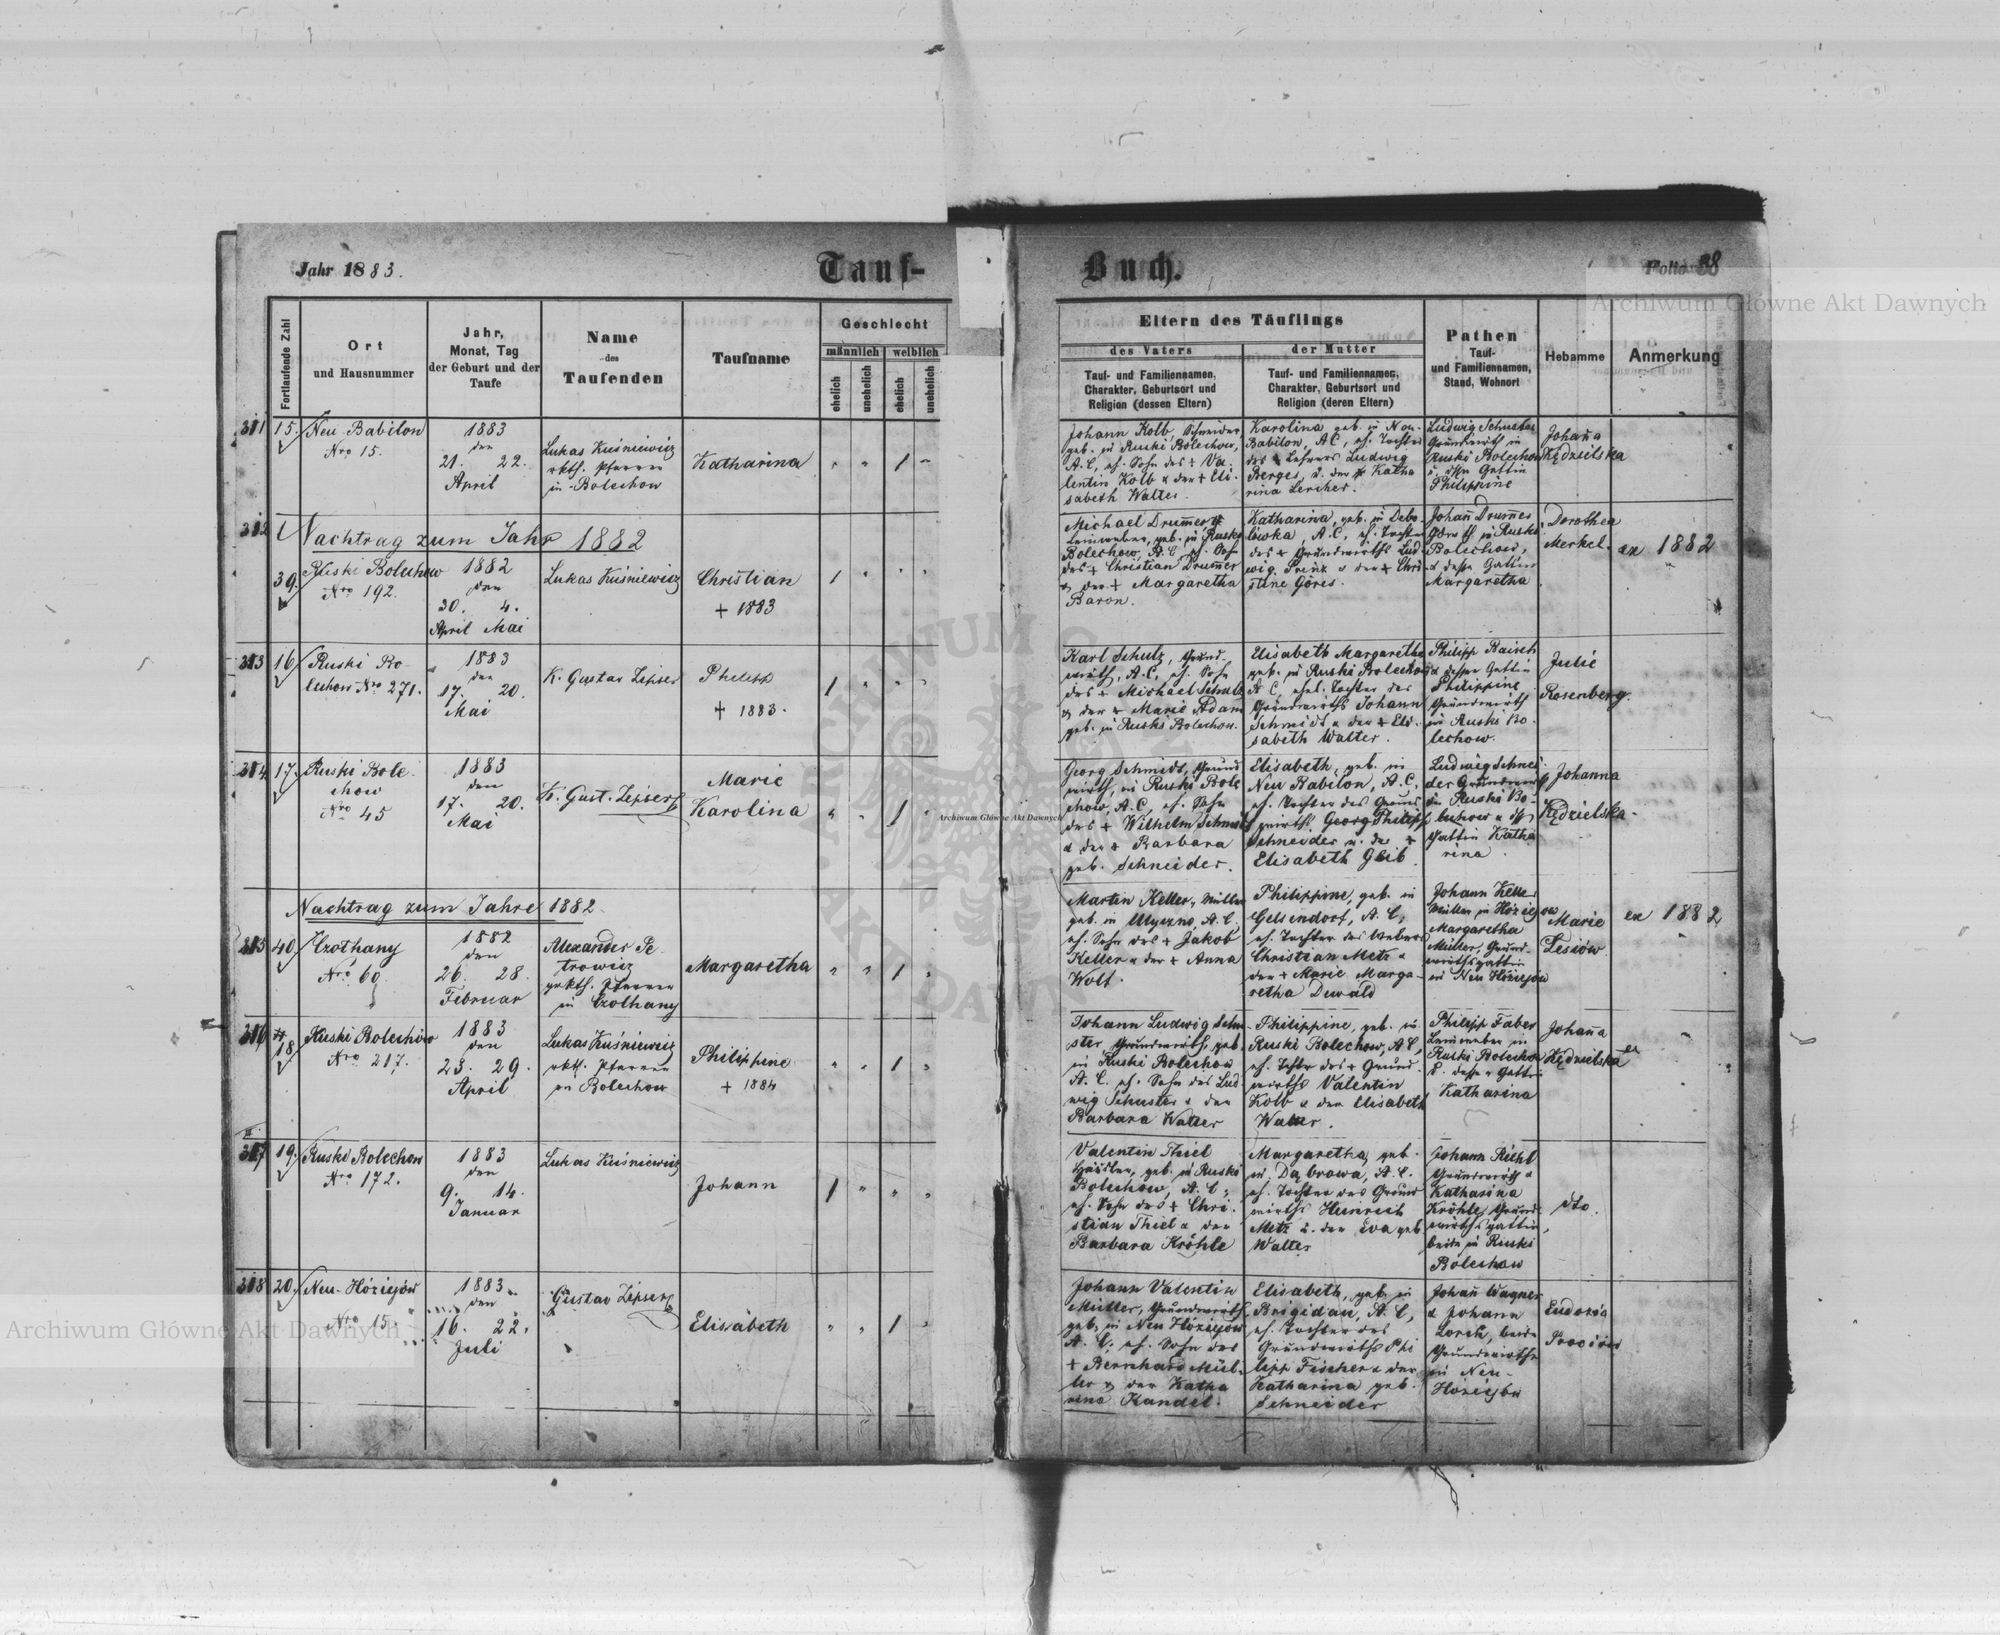 Jahr 1883.
Tauf-
Buch.
Folio 38
Archiwum Główne Akt Dawnych
Fortlaufende Zahl
Ort
und Hausnummer
Jahr,
Monat, Tag
der Geburt und der
Taufe
Name
des
Taufenden
Taufname
Geschlecht
männlich
weiblich
ehelich
unehelich
ehelich
unehelich
Eltern des Täuflings
des Vaters
der Mutter
Tauf- und Familiennamen,
Charakter, Geburtsort und
Religion (dessen Eltern)
Tauf- und Familiennamen,
Charakter, Geburtsort und
Religion (deren Eltern)
Pathen
Tauf-
und Familiennamen,
Stand, Wohnort
Hebamme
Anmerkung
311
15.
Neu-Babilon
Nro 15.
1883
den
21. 22.
April
Lukas Kuśniewicz
rkth. Pfarrer
in Bolechow
Katharina
Johann Kolb, Schneider,
geb. in Ruski Bolechow,
A.C, eh. Sohn des + Va-
lentin Kolb & der + Eli-
sabeth Walter.
Karolina geb. in Neu-
Babilon, A.C, eh. Tochter
des Lehrers Ludwig
Berges, & der Katha
rina Lercher.
Ludwig Schuster
Grundwirth in
Ruski Bolechow
Gattin
Philippine
Johana
Kędzielska
312
Nachtrag zum Jahr 1882
39.
Ruski Bolechow
Nro 192.
1882
den
30. 4.
April Mai
Lukas Kuśniewicz
Christian
+ 1883
Michael Drumer,
Leinweber, geb. in Ruski
Bolechow, A.C, eh. Sohn
des + Christian Drumer
& der + Margaretha
Baron.
Katharina, geb. in Debo-
lowka, A.C, eh. Tochter
des + Grundwirths Lud-
wig Prinz & der + Chri-
stine Göres.
Johan Drumer
in Ruski
Bolechow,
& dessen Gattin
Margaretha
Dorothea
Merkel.
ex 1882
313
16
Ruski Bo-
lechow Nro 271.
1883
den
17. 20.
Mai
K. Gustav Zipser
Philipp
+ 1883.
Karl Schutz, Grund-
wirth, A.C, eh. Sohn
des + Michael Schutz
& der + Marie Adam
geb. in Ruski Bolechow.
Elisabeth Margaretha
geb. in Ruski Bolechow
A.C, ehel. Tochter des
Grundwirths Johann
Schmidt & der + Eli-
sabeth Walter.
Philipp Raisch
& dessen Gattin
Philippine
Grundwirth
in Ruski Bo-
lechow.
Julie
Rosenberg.
314
17.
Ruski Bole
chow
Nro 45
1883
den
17. 20.
Mai
K. Gust. Zipser
Marie
Karolina
Georg Schmidt, Grund
wirth, in Ruski Bole
chow, A.C, eh. Sohn
des + Wilhelm Schmidt
& der + Barbara
geb. Schneider.
Elisabeth, geb. in
Neu Babilon, A.C,
eh. Tochter des Grund
wirths Georg Philipp
Schneider u. der +
Elisabeth Gleib.
Ludwig Schnei-
der Grundwirth
in Ruski Bo-
lechow
Gattin Katha
rina.
Johanna
Kędzielska.
Archiwum Główne Akt Dawnych
Nachtrag zum Jahre 1882.
315
40.
Czothany
Nro 60.
1882
den
26. 28.
Februar
Alexander Pe-
trowicz
grkth. Pfarrer
in Czothany
Margaretha
Martin Keller, Müller
geb. in Ulyczno, A.C.
eh. Sohn des + Jakob
Keller & der + Anna
Wolf.
Philippine, geb. in
Gelsendorf, A.C,
eh. Tochter des Webers
Christian Metz &
der + Marie Marga-
retha Dewald
Johann Keller
Müller in Hóziejow
Margaretha
Müller, Grund-
wirthsgattin
in Neu Hóziejow
Marie
Lesiów.
ex 1882
316
18.
Ruski Bolechów
Nro 217.
1883
den
23. 29.
April
Lukas Kuśniewicz
rkth. Pfarrer
in Bolechow
Philippine
+ 1884
Johann Ludwig Schu-
ster Grundwirth, geb.
in Ruski Bolechow
A.C. eh. Sohn des Lud-
wig Schuster & der
Barbara Walter
Philippine, geb. in
Ruski Bolechow, A.C,
eh. Tchter des + Grund-
wirths Valentin
Kolb & der Elisabeth
Walter.
Philipp Faber
Leinweber in
Ruski Bolechow
& dessen Gattin
Katharina
Johana
Kędzielska
317
19.
Ruski Bolechow
Nro 172.
1883
den
9. 14.
Januar
Lukas Kuśniewicz
Johann
Valentin Thiel
Häusler, geb. in Ruski
Bolechow, A.C,
eh. Sohn des + Chri-
stian Thiel & der
Barbara Kröhle
Margaretha, geb.
in Dąbrowa, A.C.
eh. Tochter des Grund
wirths Heinrich
Metz u. der Eva geb.
Walter
Johann Riehl
Grundwirth &
Katharina
Kröhle, Grund-
wirthsgattin,
beide in Ruski
Bolechow
dto.
318
20.
Neu-Hóziejów
Nro 15.
1883.
den
16. 22.
Juli
Gustav Zipser
Elisabeth
Johann Valentin
Müller, Grundwirth
geb. in Neu Hóziejow
A.C; eh. Sohn des
+ Bernhard Mül-
ler & der Katha
rina Kandel.
Elisabeth, geb. in
Brigidau, A.C,
eh. Tochter des
Grundwirths Phi
lipp Fischer & der
Katharina geb.
Schneider
Johan Wagner
& Johann
Lorch, beide
Grundwirthe
in Neu-
Hóziejów
Eudoxia
Archiwum Główne Akt Dawnych
ARCHIWUM GŁÓWNE AKT DAWNYCH